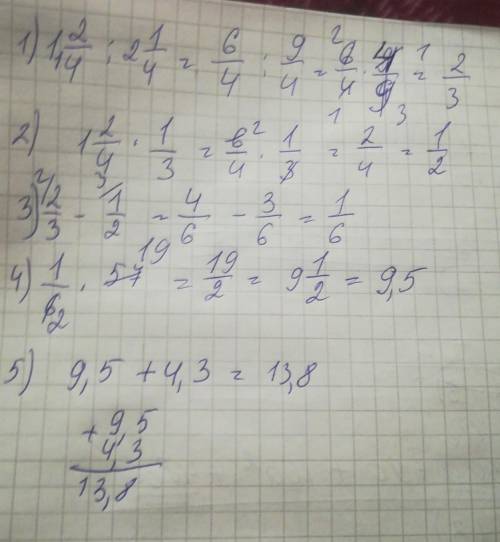 1) 1 2/4 : 2 1/4 = 6/4 : 9/4 = 6/4 · 4/9 = 2/3
2) 1 2/4 · 1/3 = 6/4 · 1/3 = 2/4 = 1/2
3) 2/3 - 1/2 = 4/6 - 3/6 = 1/6
4) 1/6 · 57 = 19/2 = 9 1/2 = 9,5
5) 9,5 + 4,3 = 13,8
+ 9,5
4,3
13,8